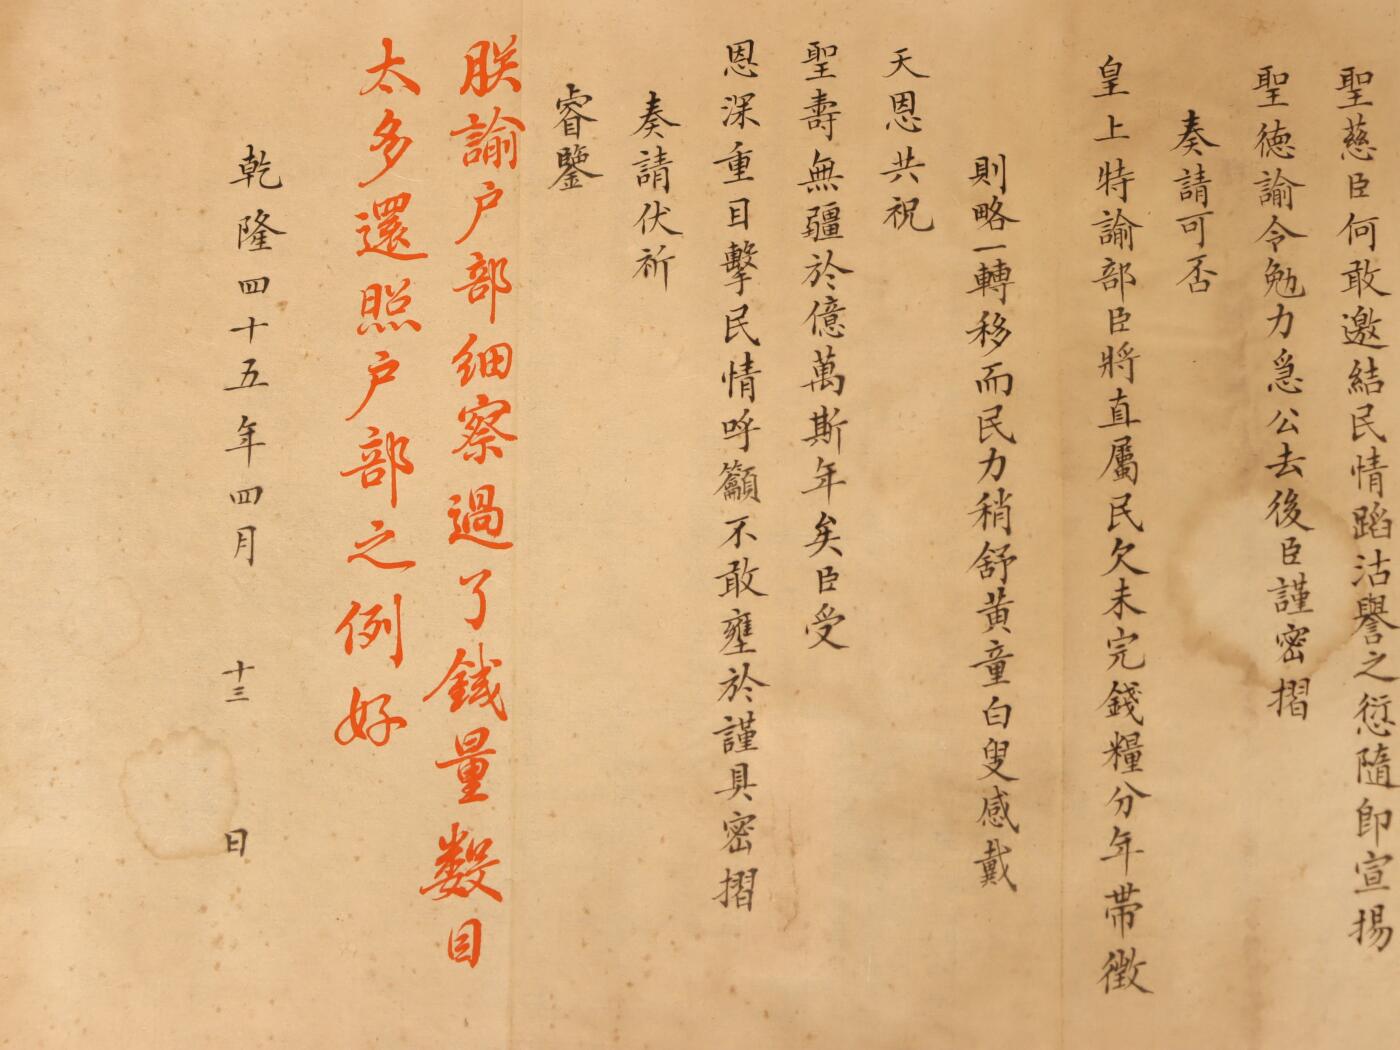 聖慈臣何敢邀結民情蹈沽譽之愆隨即宣揚
聖德諭令勉力急公去後臣謹密摺
奏請可否
皇上特諭部臣將直屬民欠未完錢糧分年帶徵
則略一轉移而民力稍舒黃童白叟感戴
天恩共祝
聖壽無疆於億萬斯年矣臣受
恩深重目擊民情呼籲不敢壅於謹具密摺
奏請伏祈
睿鑒
朕諭户部细察過了錢量数目
太多還照户部之例好
乾隆四十五年四月十三日